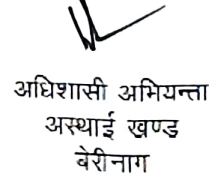 अधिशासी अभियन्ता
अस्थाई खण्ड
बेरीनाग